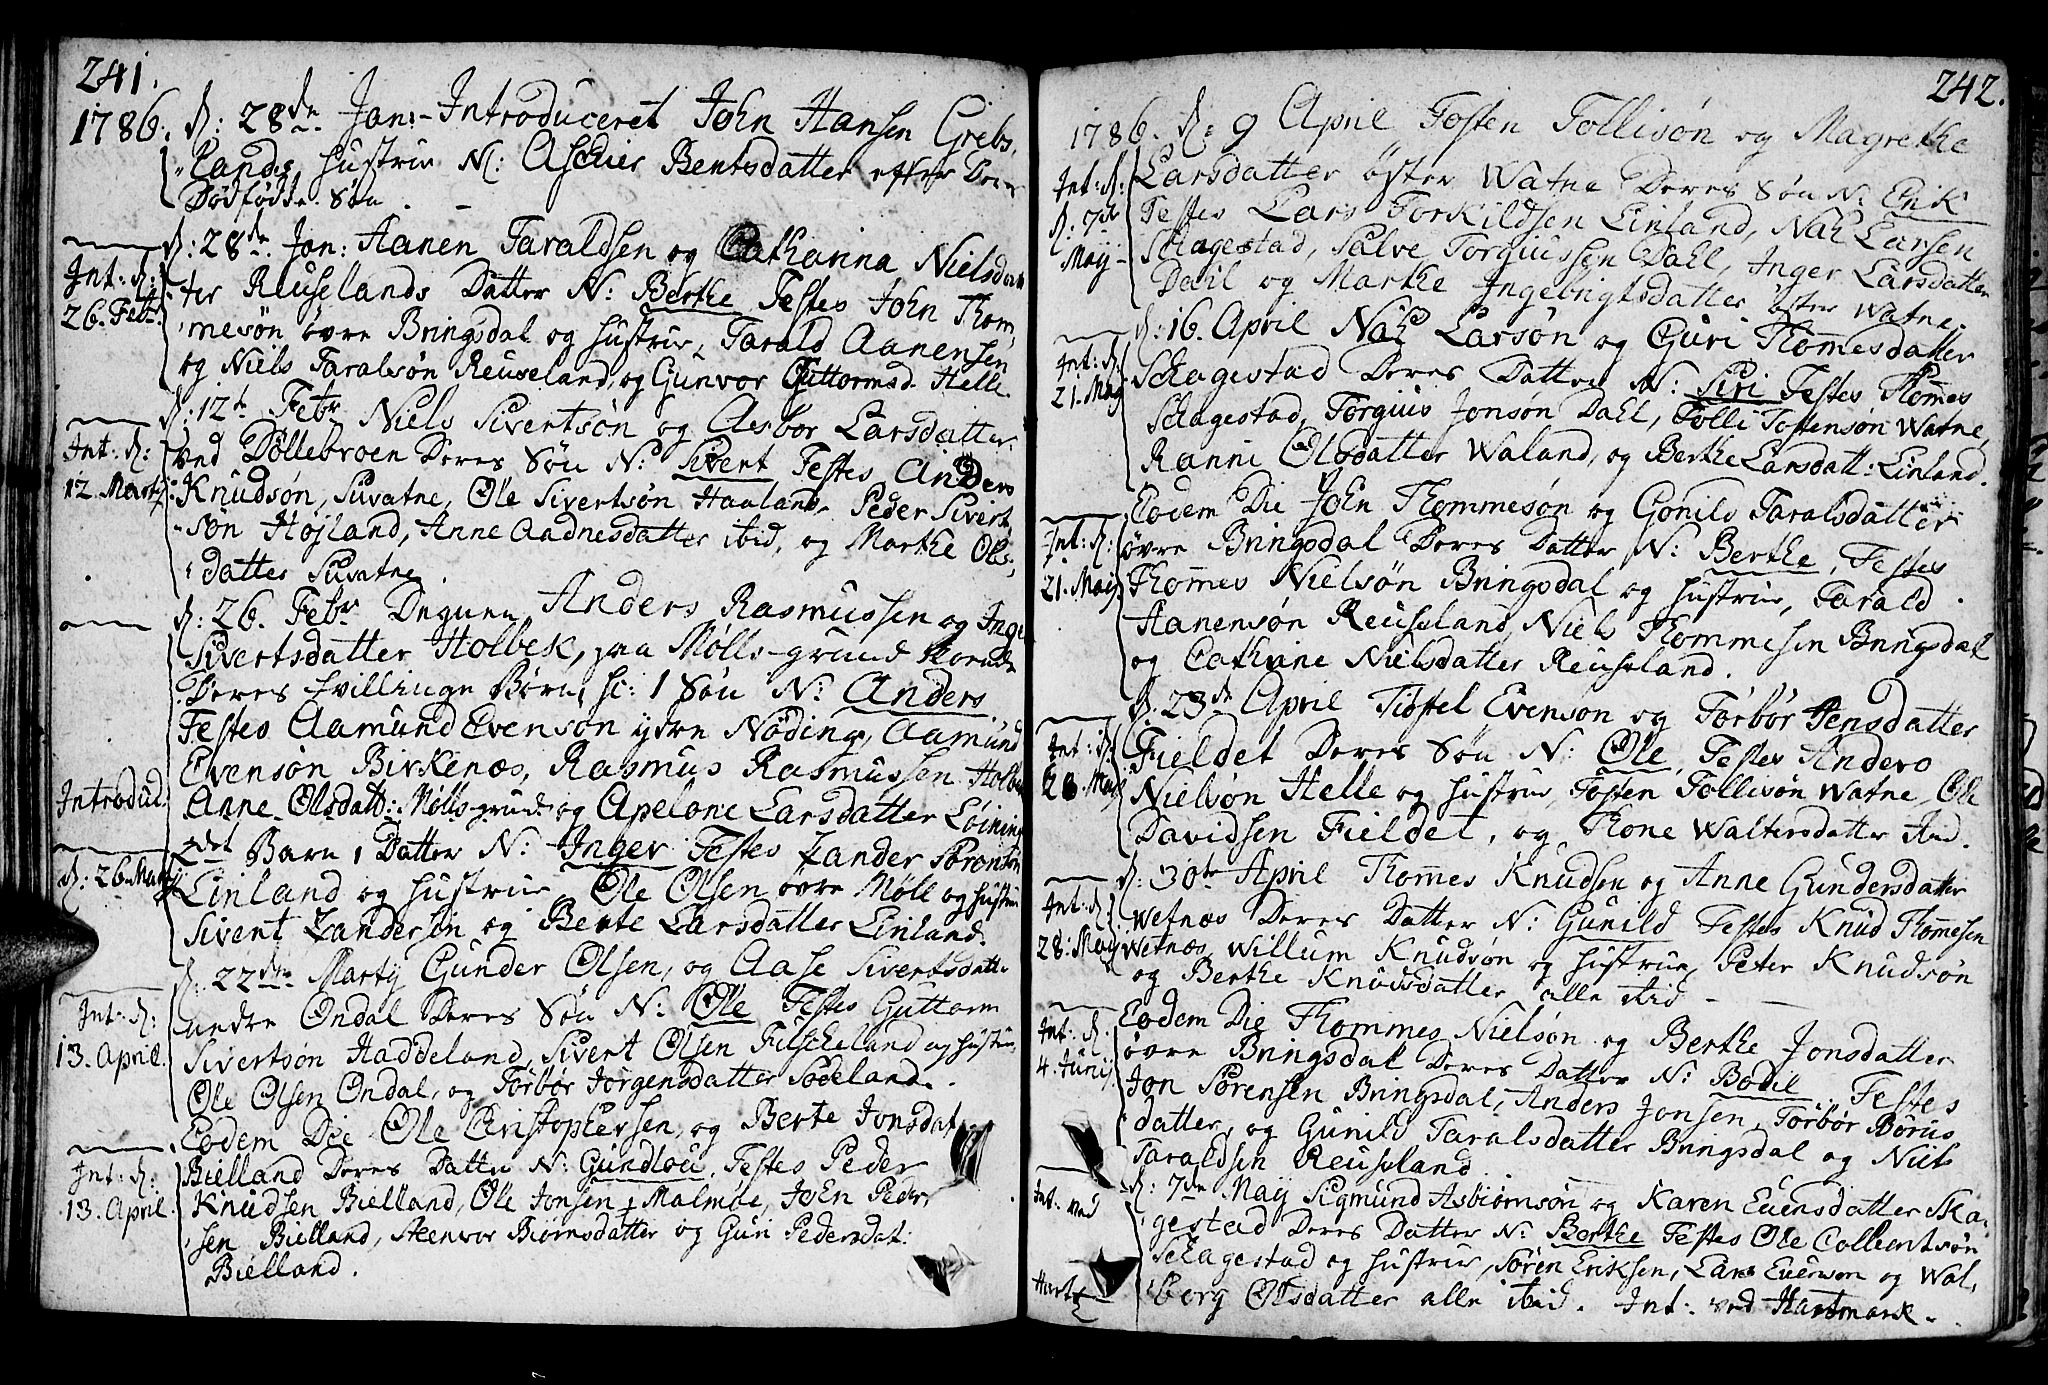 241.
1786. d: 28de Jan:- Introduceret John Hansen Grebs,
lands hustrue N: Aschier Bentsdatter efter Deres
Dødfødde Søn.
d: 28de Jan: Aanen Taraldsen og Catharina Nielsdat
Int: d: ter Reuselands Datter N: Berthe Testes John Thom,
26. Febr: mesøn øvre Bringsdal og hustrue, Tarald Aanensen
og Niels Taralsøn Reuseland, og Gunvor Guttormsd. Helle.
d: 12te Febr Niels Sivertsøn og Aesbor Larsdatter
Int: d: ved Döllebroen Deres Søn N: Sivert Testes Anders
12. Martj: Knudsøn, Suvatne, Ole Sivertsøn Haaland, Peder Sivert
søn Højland, Anne Aadnesdatter ibid, og Marthe Ols,
datter Suvatne.
d: 26. Febr Degnen Anders Rasmussen og Inge
Sivertsdatter Holbek, paa Mølls-grund
Deres tvillinge Børn, sc: 1 Søn N: Anders
Testes Aamund Evensøn ydre Nøding, Aamund
Evensøn Birkenæs, Rasmus Rasmussen Holbek
Introdud. Anne Olsdatt: Mølls-grund og Apelone Larsdatter Løining
2det Barn 1 Datter N: Inger Testes Zander Sørensøn
d: 26. Martj Einland og hustrue, Ole Olsen øvre Møll og hustrue
Sivert Zandersøn og Berte Larsdatter Einland.
d: 22de Martij Gunder Olsen, og Aase Sivertsdatter
Int: d: nedre Ondal Deres Søn N: Ole Testes Guttorm
13. April. Sivertsøn Haddeland, Sivert Olsen Fuscheland og hustrue,
Ole Olsen Ondal, og Torbør Jorgensdatter Sodeland.
Eodem Die Ole Christophersen, og Berte Jonsdat
Int: d: Bielland Deres Datter N: Gundlou, Testes Peder
13. April. Knudsen Bielland, Ole Jonsen Malmøe, John Peder,
sen Bielland, Steenvor Biørnsdatter og Guri Pedersdat:
Bielland.
242.
1786. d: 9 April Tosten Tollisøn og Magrethe
Int: d: Larsdatter öster Watne Deres Søn N: Erik
d: 7de Testes Lars Torkildsen Einland, Nah Larsen
May- Schagestad, Salve Torguussen Dahl, Inger Larsdatter
Dahl og Marthe Ingebrigtsdatter öster Watne.
d: 16. April Nah Larsøn og Guri Thomesdatter
Int: d: Schagestad Deres Datter N: Siri Testes Thomes
21. May Schagestad, Torguus Jonsøn Dahl, Tolli Tostensøn Watne,
Ranni Olsdatter Waland, og Berthe Larsdatt: Einland.
Eodem Die John Thommesøn og Gonild Taralsdatter
Int: d: øvre Bringsdal Deres Datter N: Berthe, Testes
21. May Thomes Nielsøn Bringsdal og hustrue, Tarald
Aanensøn Reuseland, Niels Thommesen Bringsdal
og Cathrine Nielsdatter Reuseland.
d. 23de April Tidstel Evensøn og Torbør Jensdatter
Int: d: Fieldet Deres Søn N: Ole, Testes Anders
28. May Nielsøn Helle og hustrue, Tosten Tollisøn Watne, Ole
Davidsen Fieldet, og Thone Waltersdatter Aud.
d: 30te April Thomes Knudsen og Anne Gundersdatter
Int: d: Wetnæs Deres Datter N: Gunild Testes Knud Thomesen
28. May Wetnæs, Willum Knudsøn og hustrue, Peter Knudsøn
og Berthe Knudsdatter alle ibid -
Eodem Die Thommes Nielsøn og Berthe Jonsdatter
Int: d. øvre Bringsdal Deres Datter N: Bodil Testes
4. Junij Jon Sørensen Bringsdal, Anders Jonsen, Torbør Børus
datter, og Gunild Taralsdatter Bringsdal og Niels
Taraldsen Reuseland.
d: 7de May Sigmund Asbiørnsøn og Karen Evensdatter Ska,
Int. ved gestad Deres Datter N: Berthe Testes Ole Collbentsøn
Schagestad og hustrue, Søren Eriksen, Lars Evensøn og Wal,
Hartz borg Olsdatter alle ibid. Int: ved Hartmark.